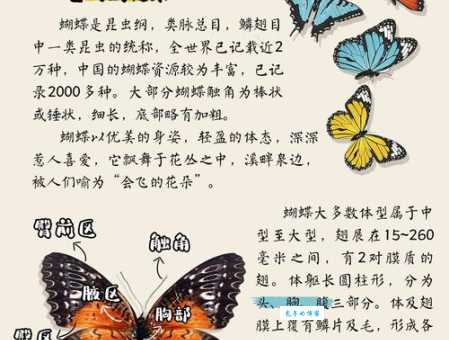 蝴蝶是昆虫纲，类脉总目，鳞翅目
中一类昆虫的统称，全世界已记载近2
万种，中国的蝴蝶资源较为丰富，已记
录2000多种。大部分蝴蝶触角为棒状
或锤状，细长，底部略有加粗。
蝴蝶以优美的身姿，轻盈的体态，深深
惹人喜爱，它飘舞于花丛之中，溪畔泉边，
被人们喻为“会飞的花朵”。
臂前区
触角
腋区
胸部
臀区
蝴蝶大多数体型属于中
型至大型，翅展在15~260
毫米之间，有2对膜质的
翅。体躯长圆柱形，分为
头、胸、腹三部分。体及翅
膜上覆有鳞片及毛，形成各